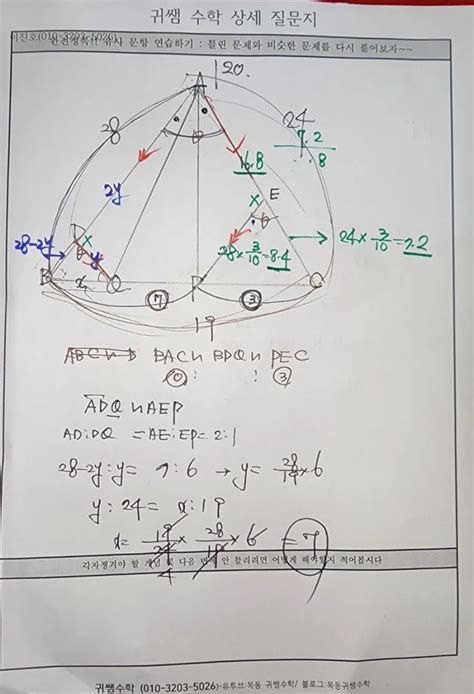 귀쌤 수학 상세 질문지
이진호(010-3203-5026)
완전정복!! 유사 문항 연습하기 : 틀린 문제와 비슷한 문제를 다시 풀어보자~~
A
120.
28
24
7.2
.8
16.8
2y
E
x
θ
28-2y
x
y
θ
28×3/10=8.4
24×3/10=7.2
B
x
Q
P
C
⑦
③
19
BAC∽BDQ∽PEC
⑩ : : ③
ADQ∽AEP
AD:DQ =AE:EP=2:1
28-2y:y= 7:6 → y= 28/19×6
y:24= x:19
x= 19/24 × 28/19 × 6 = 7
4
각자챙겨야 할 개념 및 다음 번에 안 틀리려면 어떻게 해야할지 적어봅시다
귀쌤수학 (010-3203-5026)-유투브:목동 귀쌤수학/ 블로그:목동귀쌤수학